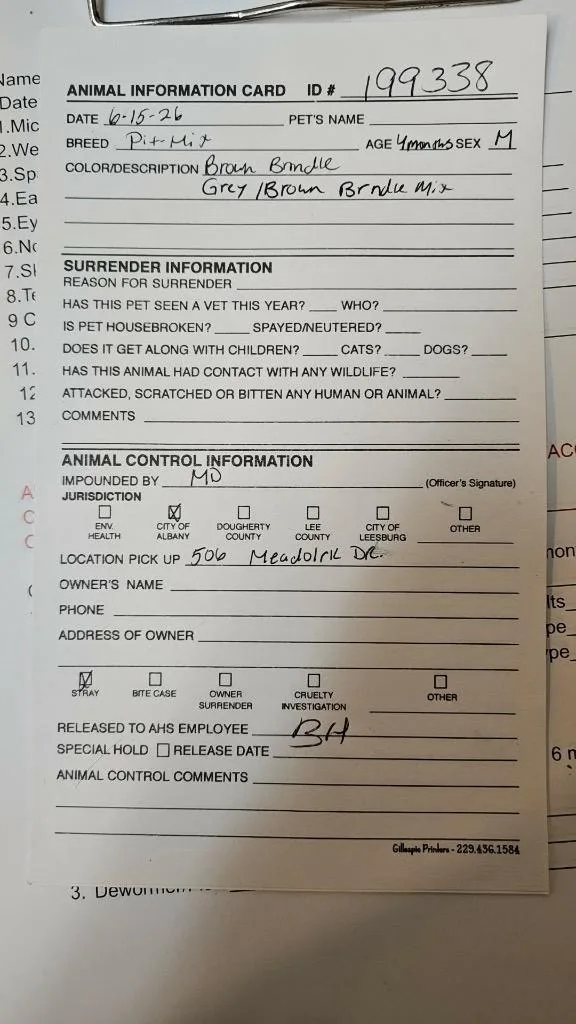 Name
Date
1.Mic
2.We
3.Sp
4.Ea
5.Ey
6.No
7.Sk
8.Te
9 C
10.
11.
12
13
ANIMAL INFORMATION CARD ID # 199338
DATE 6-15-26 PET'S NAME
BREED Pit-Mix AGE 4 months SEX M
COLOR/DESCRIPTION Brown Brindle
Grey / Brown Brndle Mix
SURRENDER INFORMATION
REASON FOR SURRENDER
HAS THIS PET SEEN A VET THIS YEAR? WHO?
IS PET HOUSEBROKEN? SPAYED/NEUTERED?
DOES IT GET ALONG WITH CHILDREN? CATS? DOGS?
HAS THIS ANIMAL HAD CONTACT WITH ANY WILDLIFE?
ATTACKED, SCRATCHED OR BITTEN ANY HUMAN OR ANIMAL?
COMMENTS
ANIMAL CONTROL INFORMATION
IMPOUNDED BY MD (Officer's Signature)
JURISDICTION
ENV. HEALTH
CITY OF ALBANY
DOUGHERTY COUNTY
LEE COUNTY
CITY OF LEESBURG
OTHER
LOCATION PICK UP 506 DR.
OWNER'S NAME
PHONE
ADDRESS OF OWNER
STRAY
BITE CASE
OWNER SURRENDER
CRUELTY INVESTIGATION
OTHER
RELEASED TO AHS EMPLOYEE BH
SPECIAL HOLD RELEASE DATE
ANIMAL CONTROL COMMENTS
Gillespie Printers - 229.436.1584
3.